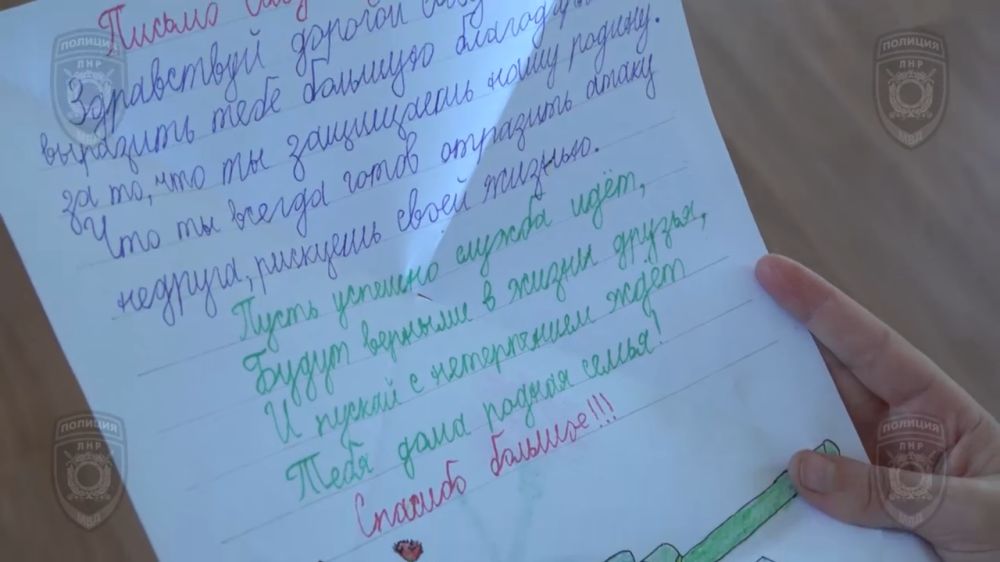 Письмо
Здравствуй дорогой
выразить тебе большую
за то, что ты защищаешь нашу родину.
Что ты всегда готов отразить атаку
недруга, рискуешь своей жизнью.
Пусть успешно служба идёт,
Будут верными в жизни друзья,
И пускай с нетерпением ждёт
Тебя дома родная семья!
Спасибо большое!!!
ПОЛИЦИЯ
ЛНР
МВД
ПОЛИЦИЯ
ЛНР
МВД
ПОЛИЦИЯ
ЛНР
МВД
ПОЛИЦИЯ
ЛНР
МВД